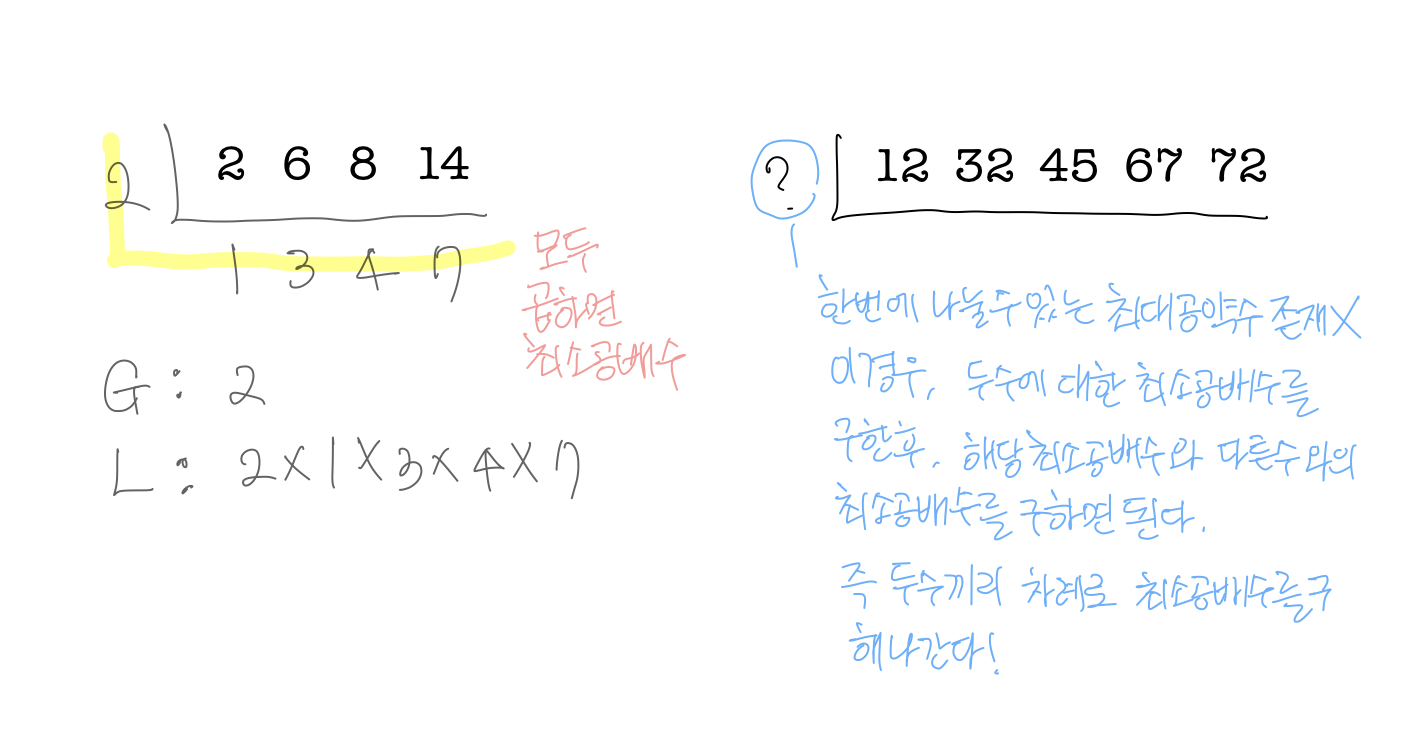 2 2 6 8 14
1 3 4 7
모두
곱하면
최소공배수
G : 2
L : 2 X 1 X 3 X 4 X 7
? 12 32 45 67 72
한번에 나눌수 있는 최대공약수 존재X
이경우, 두수에 대한 최소공배수를
구한후, 해당최소공배수와 다른수와의
최소공배수를 구하면 된다.
즉 두수끼리 차례로 최소공배수를구
해나간다!